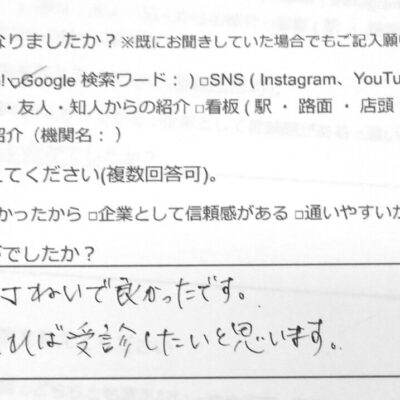 なりましたか？※既にお聞きしていた場合でもご記入願
!✓Google 検索ワード： ) □SNS ( Instagram、YouTu
・友人・知人からの紹介 □看板 ( 駅 ・ 路面 ・ 店頭
紹介（機関名： ）
てください(複数回答可)。
かったから □企業として信頼感がある □通いやすいか
でしたか？
ねいで良かったです。
れば受診したいと思います。